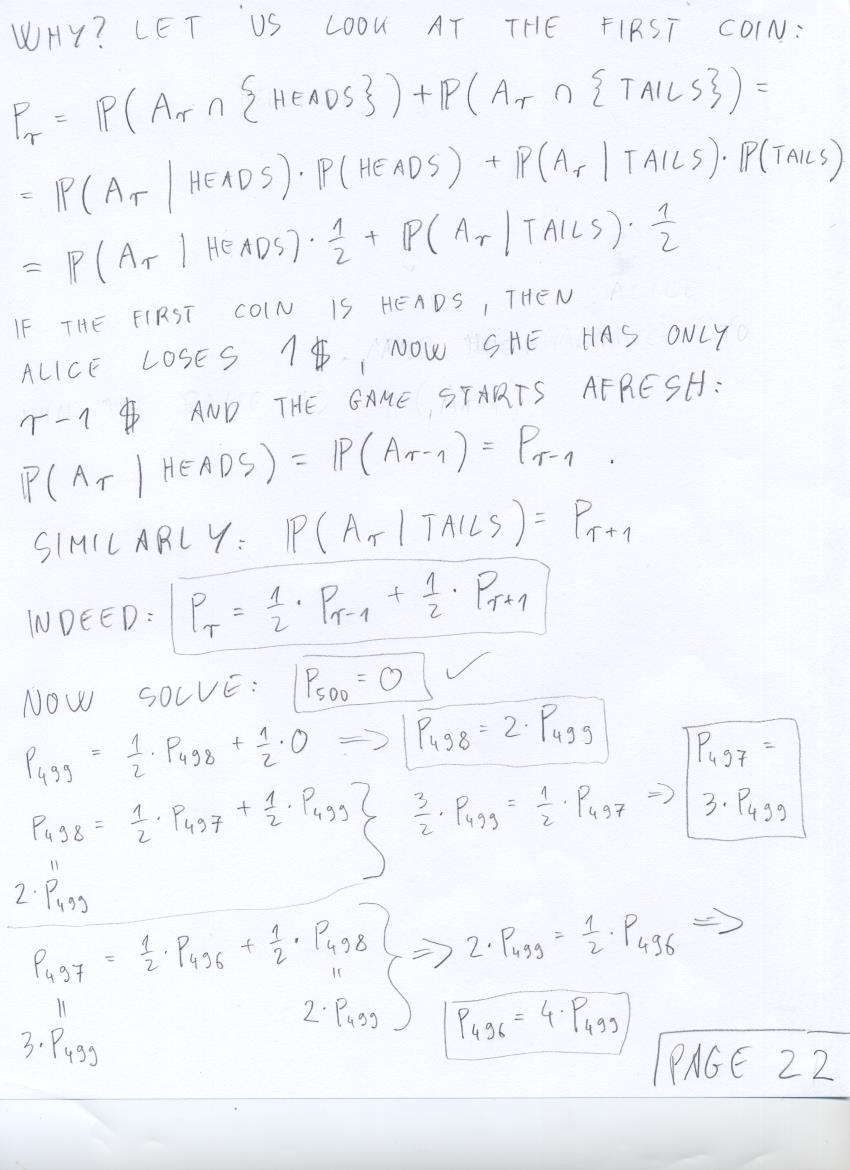 WHY? LET US LOOK AT THE FIRST COIN:
P_r = ℙ(A_r ∩ {HEADS}) + ℙ(A_r ∩ {TAILS}) =
= ℙ(A_r | HEADS) · ℙ(HEADS) + ℙ(A_r | TAILS) · ℙ(TAILS)
= ℙ(A_r | HEADS) · 1/2 + ℙ(A_r | TAILS) · 1/2
IF THE FIRST COIN IS HEADS, THEN
ALICE LOSES 1$, NOW SHE HAS ONLY
r-1 $ AND THE GAME STARTS AFRESH:
ℙ(A_r | HEADS) = ℙ(A_{r-1}) = P_{r-1} .
SIMILARLY: ℙ(A_r | TAILS) = P_{r+1}
INDEED: P_r = 1/2 · P_{r-1} + 1/2 · P_{r+1}
NOW SOLVE: P_500 = 0 ✓
P_499 = 1/2 · P_498 + 1/2 · 0 => P_498 = 2 · P_499
P_498 = 1/2 · P_497 + 1/2 · P_499 } 3/2 · P_499 = 1/2 · P_497 => P_497 = 3 · P_499
=
2 · P_499
P_497 = 1/2 · P_496 + 1/2 · P_498 } => 2 · P_499 = 1/2 · P_496 =>
= =
3 · P_499 2 · P_499 P_496 = 4 · P_499
PAGE 22